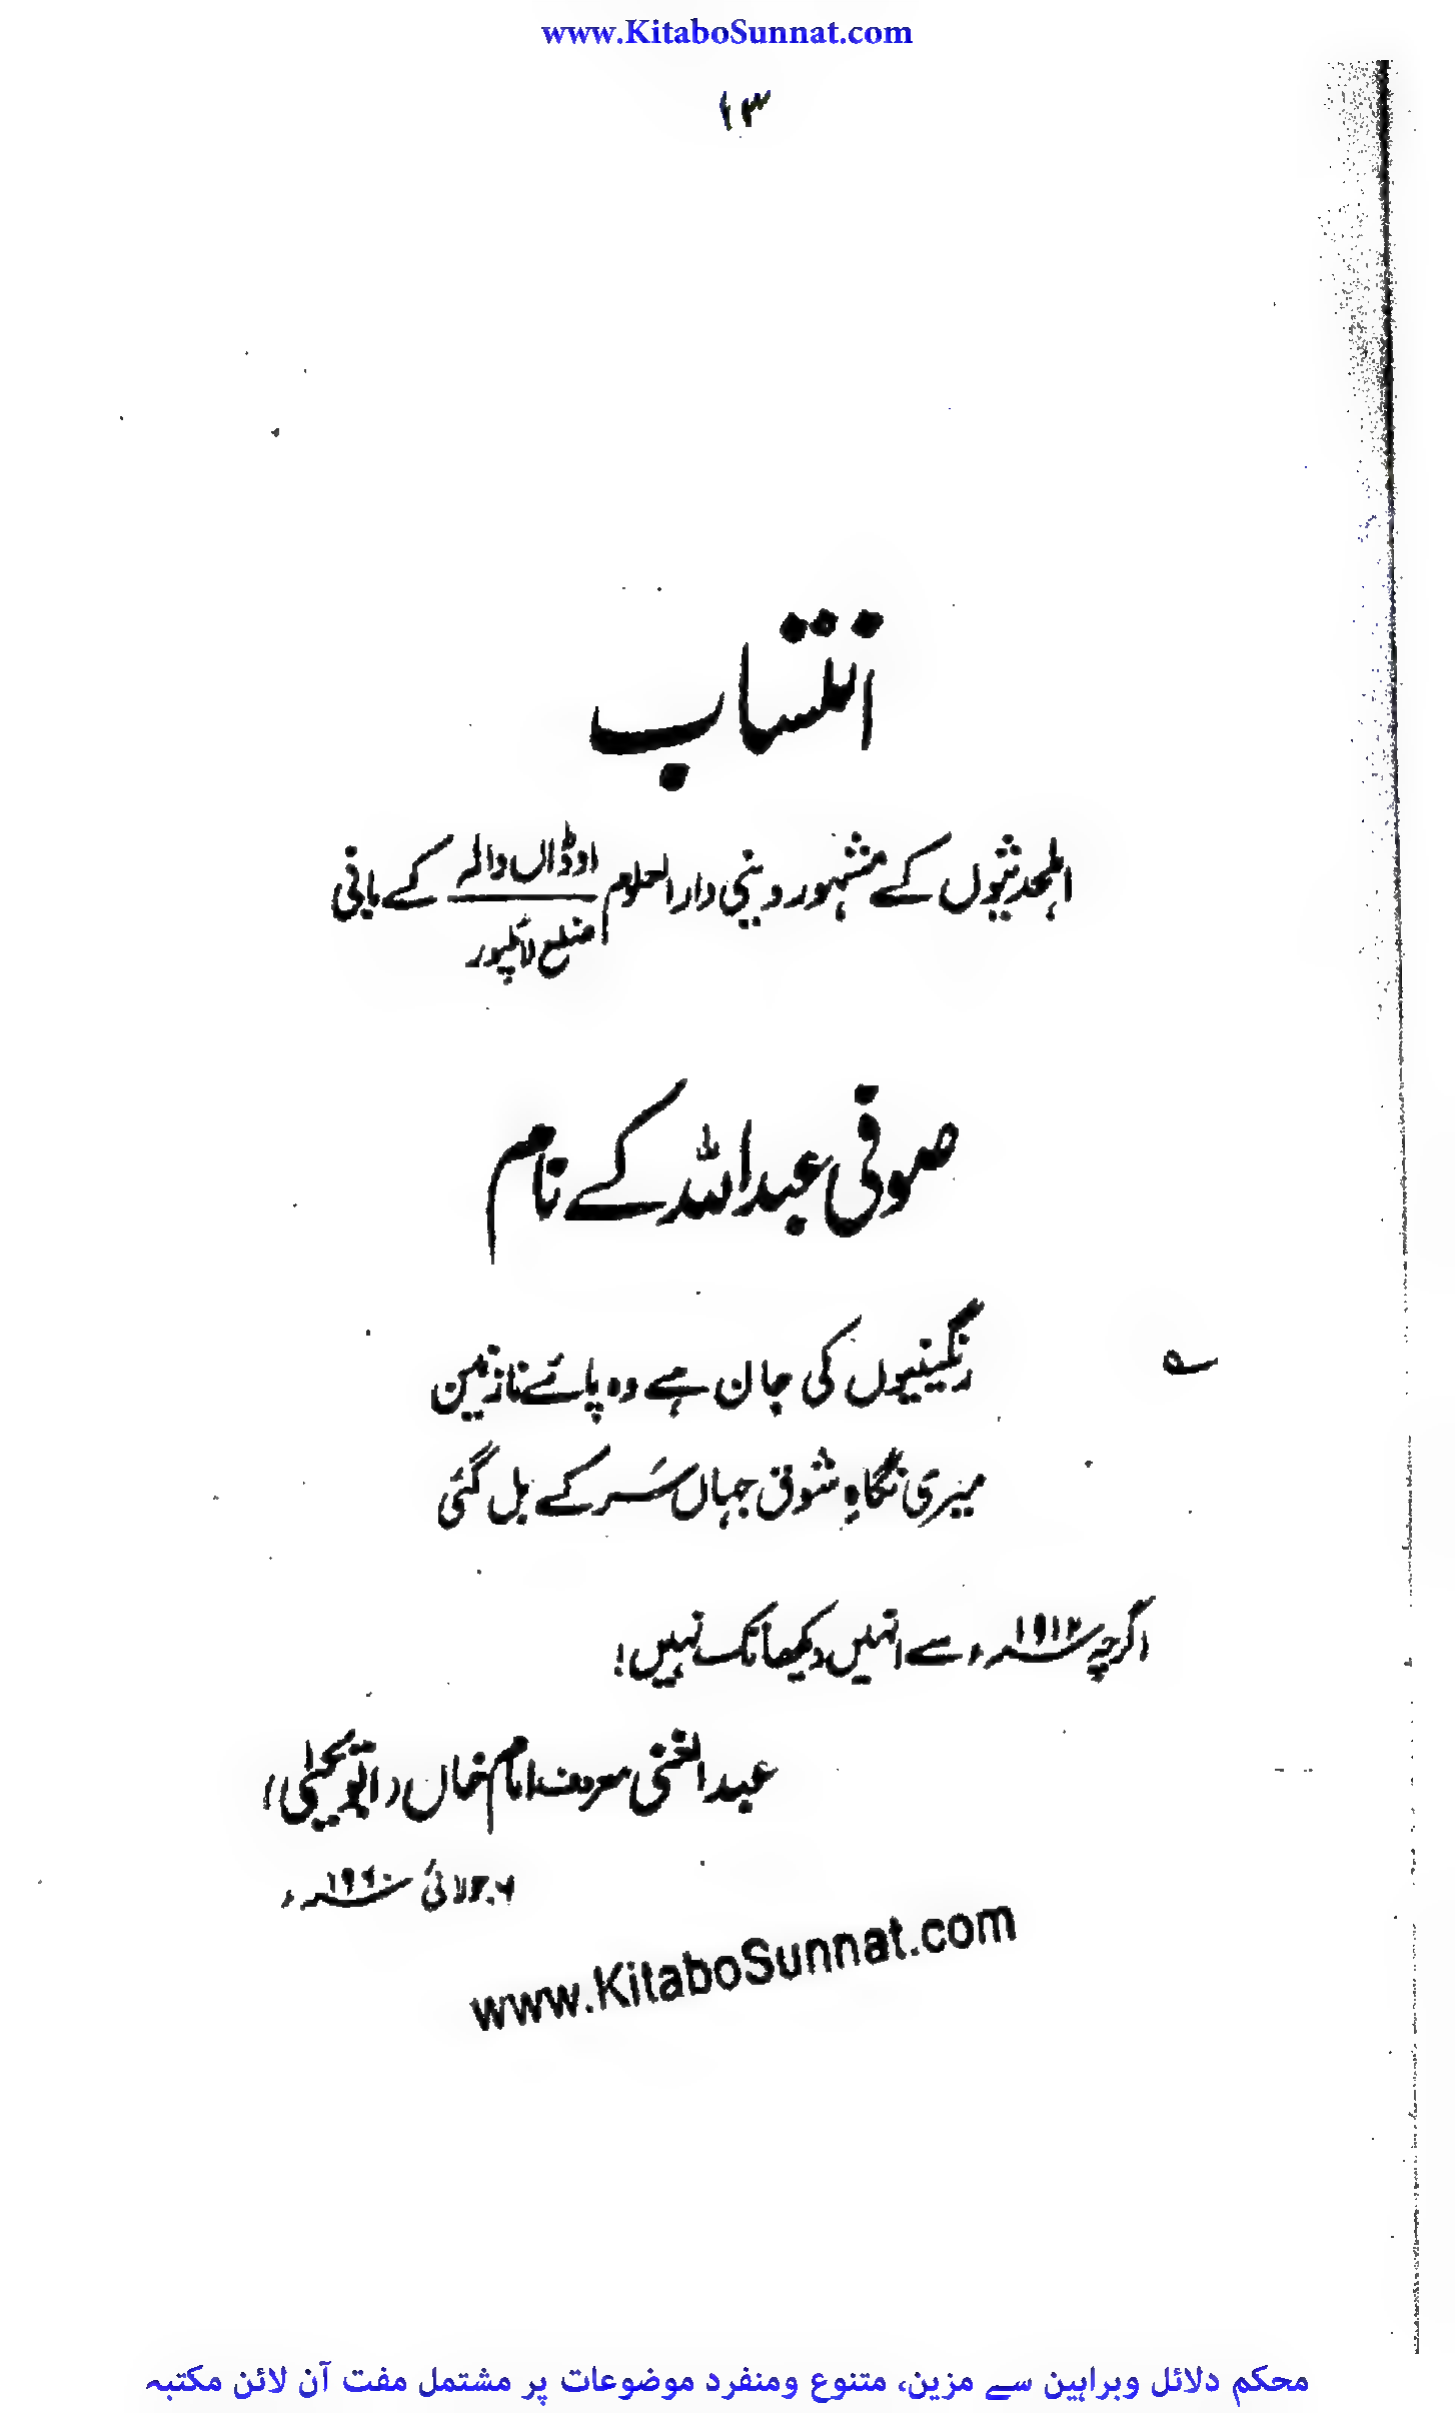 www.KitaboSunnat.com
۱۳
انتساب
اہلحدیثوں کے مشہور دینی دارالعلوم اوڈاں والہ کے بانی
ضلع لائلپور
صوفی عبداللہ کے نام
؎ رنگینیوں کی جان ہے وہ پائے نازنین
میری نگاہِ شوق جہاں سَر کے بل گئی
اگرچہ ۱۹۱۲ء سے انہیں دیکھا تک نہیں!
عبدالغنی معروف امام خاں (ابو یحییٰ)
۶ جولائی ۱۹۶۰ء
www.KitaboSunnat.com
محکم دلائل وبراہین سے مزین، متنوع ومنفرد موضوعات پر مشتمل مفت آن لائن مکتبہ